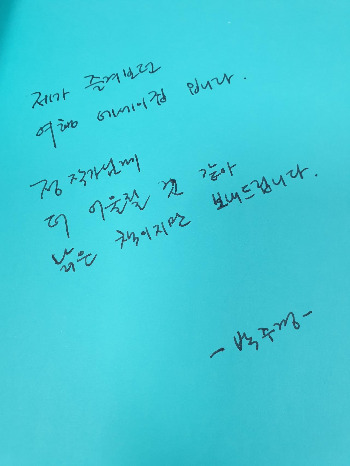 제가 즐겨보던
여행 에세이집 입니다.
정 작가님께
더 어울릴 것 같아
낡은 책이지만 보내드립니다.